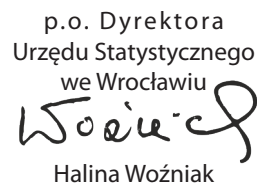 p.o. Dyrektora
Urzędu Statystycznego
we Wrocławiu
Halina Woźniak